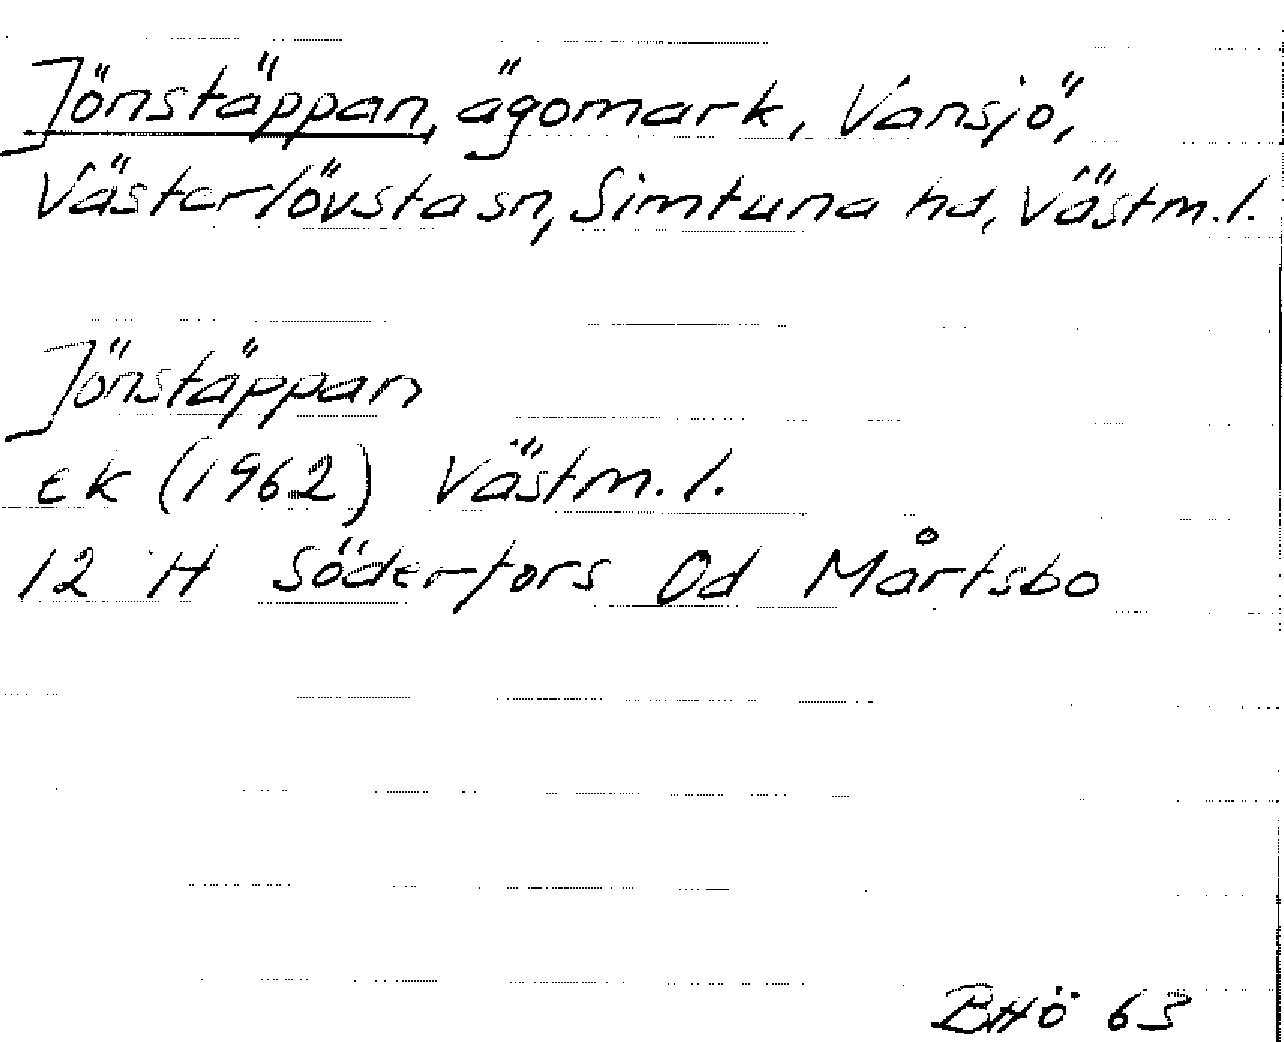 Jönstäppan, ägomark, Vansjö,
Västerlövsta sn, Simtuna hd, Västm.l.
Jönstäppan
ek (1962) Västm.l.
12 H Söderfors 0d Mårtsbo
BHö 63